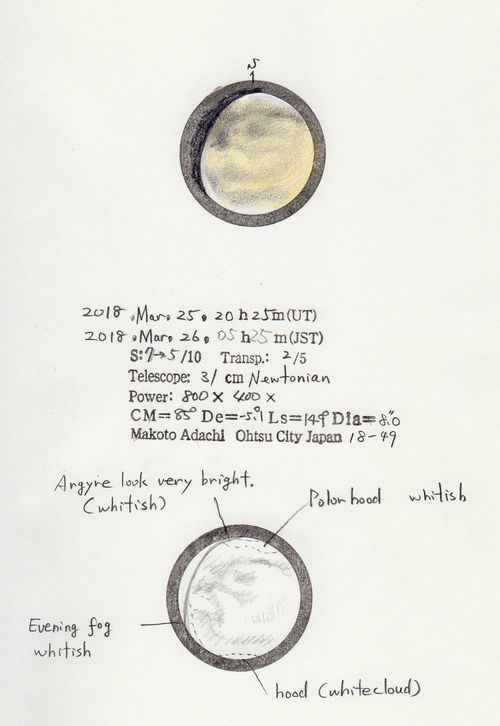 2018.Mar. 25. 20h25m(UT)
2018.Mar. 26. 05h25m(JST)
S:7→5/10 Transp.: 2/5
Telescope: 31 cm Newtonian
Power: 800× 400×
CM=85° De=-5.°1 Ls=149° Dia=8."0
Makoto Adachi Ohtsu City Japan 18-49
Argyre look very bright.
(whitish)
Polar hood whitish
Evening fog
whitish
hood (whitecloud)